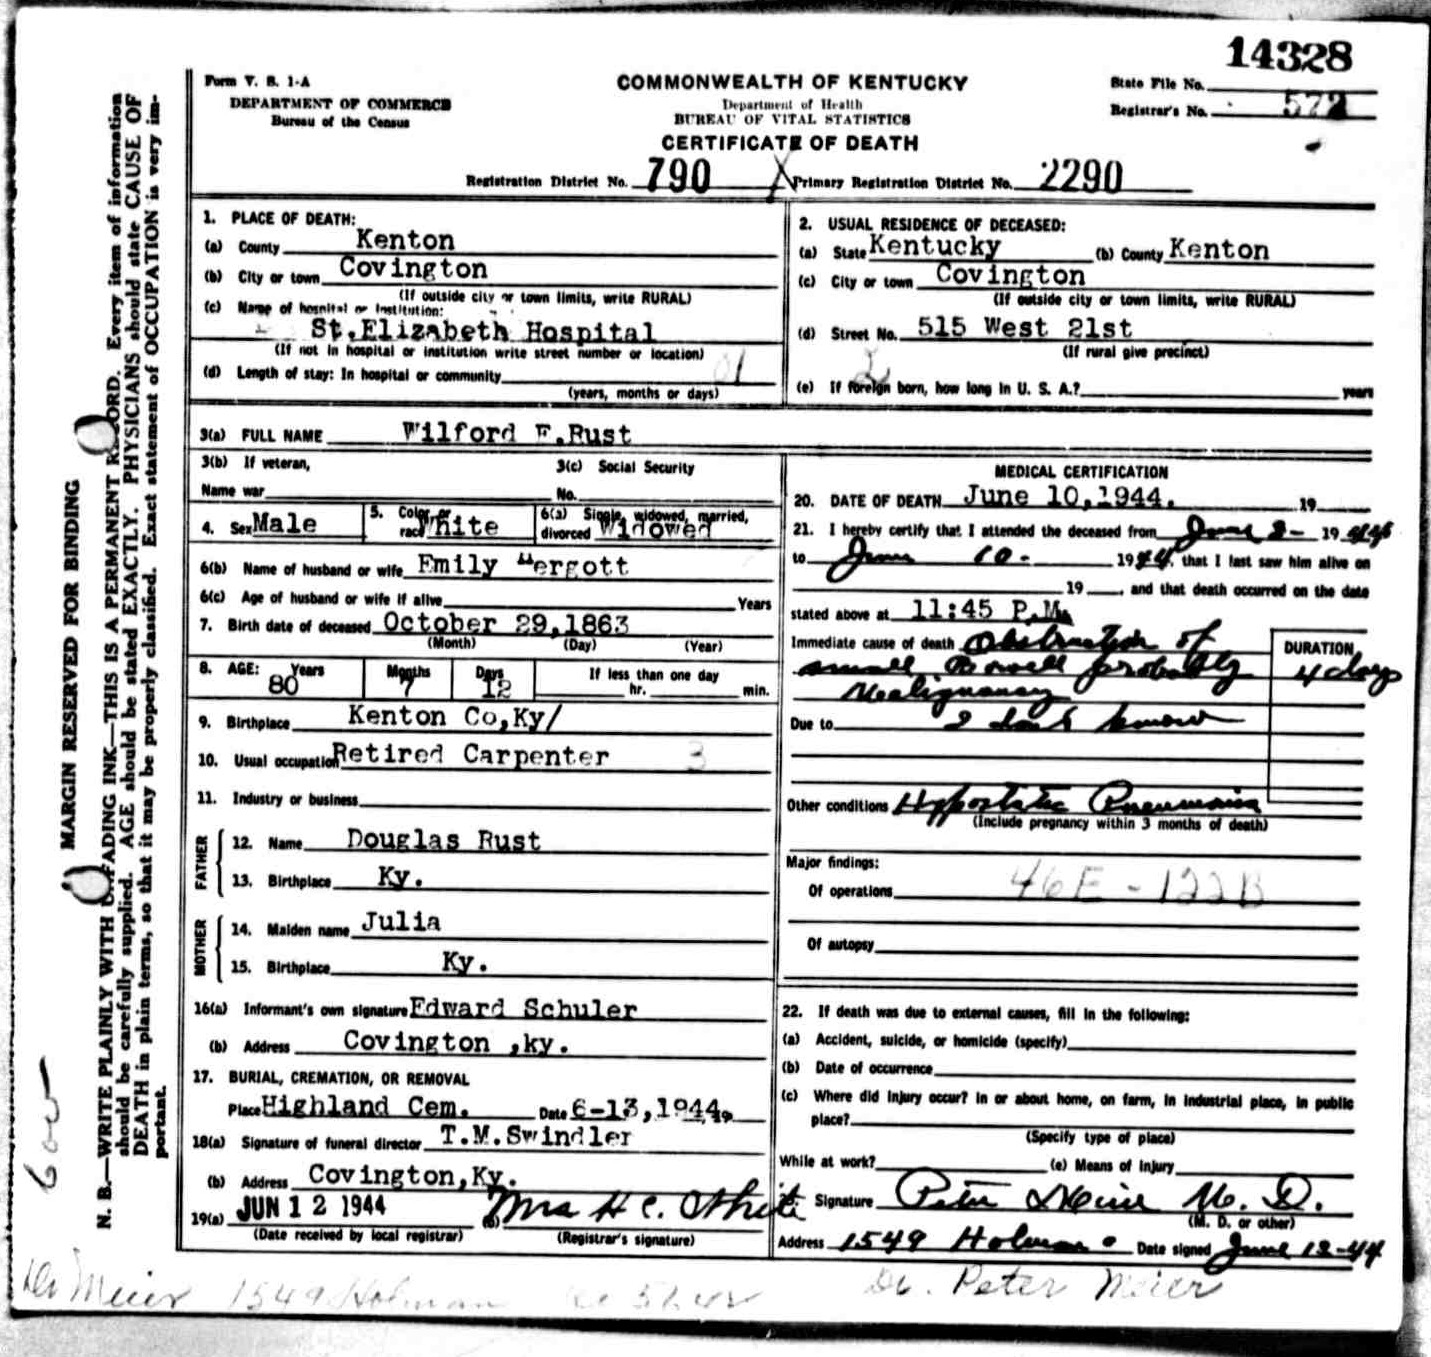 14328
Form V. S. 1-A
DEPARTMENT OF COMMERCE
Bureau of the Census
COMMONWEALTH OF KENTUCKY
Department of Health
BUREAU OF VITAL STATISTICS
CERTIFICATE OF DEATH
State File No.
Registrar's No. 572
Registration District No. 790 Primary Registration District No. 2290
1. PLACE OF DEATH:
(a) County Kenton
(b) City or town Covington
(If outside city or town limits, write RURAL)
(c) Name of hospital or institution:
St.Elizabeth Hospital
(If not in hospital or institution write street number or location)
(d) Length of stay: In hospital or community
(years, months or days)
2. USUAL RESIDENCE OF DECEASED:
(a) State Kentucky (b) County Kenton
(c) City or town Covington
(If outside city or town limits, write RURAL)
(d) Street No. 515 West 21st
(If rural give precinct)
(e) If foreign born, how long in U. S. A.? years
3(a) FULL NAME Wilford F.Rust
3(b) If veteran,
Name war
3(c) Social Security
No.
4. Sex Male
5. Color or race White
6(a) Single, widowed, married, divorced Widowed
6(b) Name of husband or wife Emily Hergott
6(c) Age of husband or wife if alive Years
7. Birth date of deceased October 29,1863
(Month) (Day) (Year)
8. AGE: Years 80 Months 7 Days 12 If less than one day
hr. min.
9. Birthplace Kenton Co,Ky/
10. Usual occupation Retired Carpenter 3
11. Industry or business
FATHER
12. Name Douglas Rust
13. Birthplace Ky.
MOTHER
14. Maiden name Julia
15. Birthplace Ky.
16(a) Informant's own signature Edward Schuler
(b) Address Covington ,ky.
17. BURIAL, CREMATION, OR REMOVAL
Place Highland Cem. Date 6-13,1944.
18(a) Signature of funeral director T.M.Swindler
(b) Address Covington,Ky.
19(a) JUN 12 1944 (b) Mrs H C. White
(Date received by local registrar) (Registrar's signature)
MEDICAL CERTIFICATION
20. DATE OF DEATH June 10,1944. 19
21. I hereby certify that I attended the deceased from June 2- 1944
to June 10- 1944, that I last saw him alive on
19 , and that death occurred on the date
stated above at 11:45 P.M.
Immediate cause of death Obstruction of
small Bowell probably
Malignancy
DURATION
4 days
Due to I don't know
Other conditions Hypostatic Pneumonia
(Include pregnancy within 3 months of death)
Major findings:
Of operations 46E-122B
Of autopsy
22. If death was due to external causes, fill in the following:
(a) Accident, suicide, or homicide (specify)
(b) Date of occurrence
(c) Where did injury occur? In or about home, on farm, in industrial place, in public
place?
(Specify type of place)
While at work? (e) Means of Injury
Signature Peter Meier M. D.
(M. D. or other)
Address 1549 Holman. Date signed June 12-44
Dr Meier 1549 Holman
Dr. Peter Meier
MARGIN RESERVED FOR BINDING
N. B.—WRITE PLAINLY WITH UNFADING INK—THIS IS A PERMANENT RECORD. Every item of information
should be carefully supplied. AGE should be stated EXACTLY. PHYSICIANS should state CAUSE OF
DEATH in plain terms, so that it may be properly classified. Exact statement of OCCUPATION is very im-
portant.